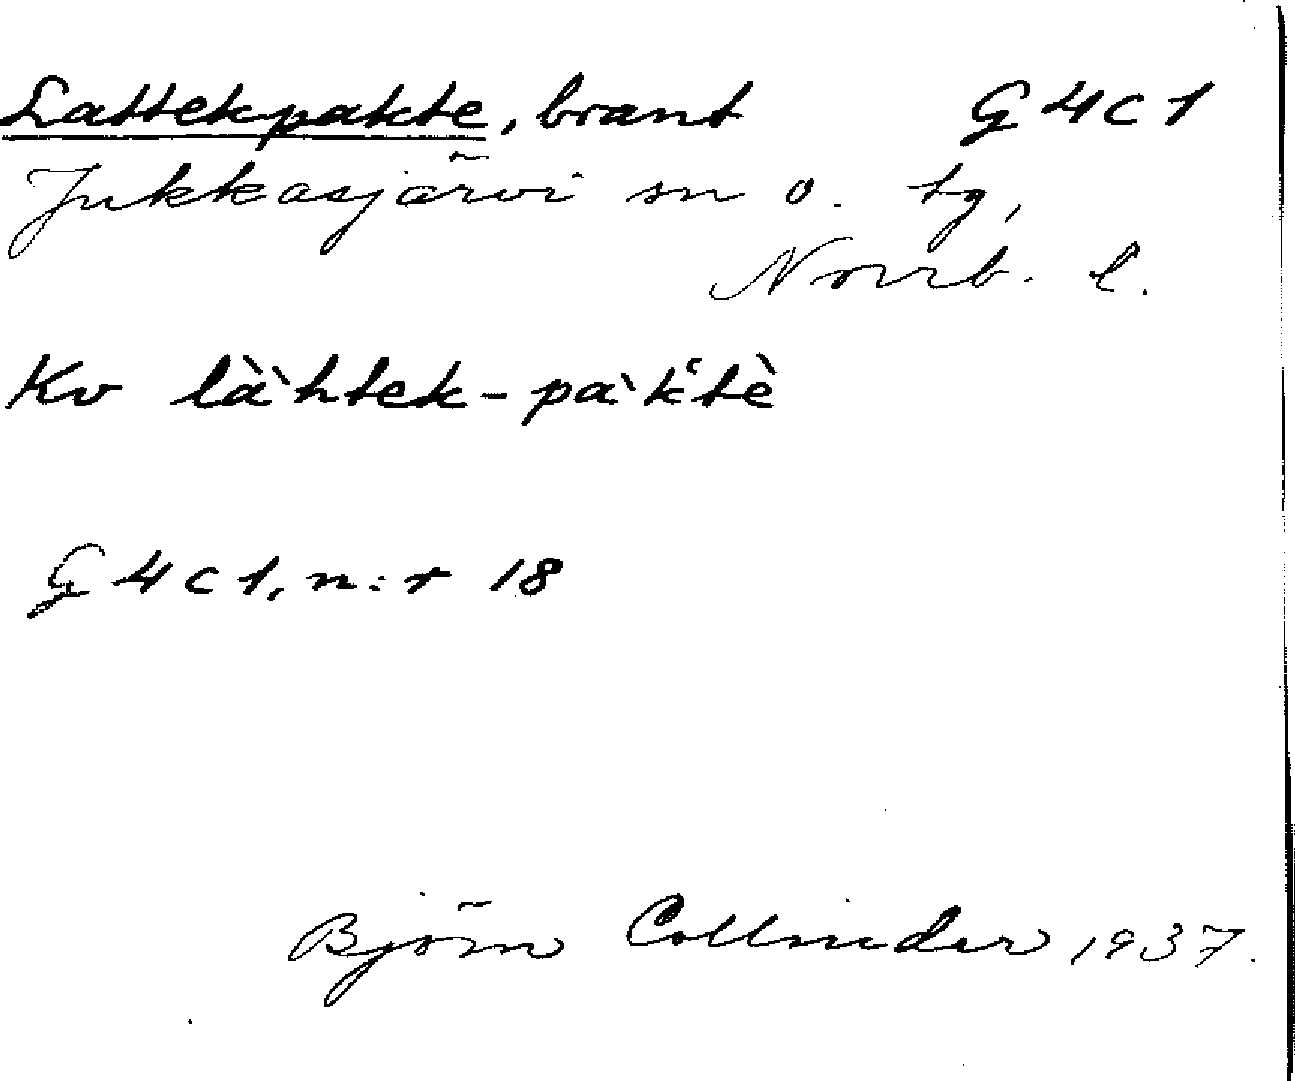 Lattekpakte, brant G 4 c 1
Jukkasjärvi sn o. tg,
Norrb. l.
Kv là`htek-pà`k‘tè
G 4 c 1, n:r 18
Björn Collinder 1937.